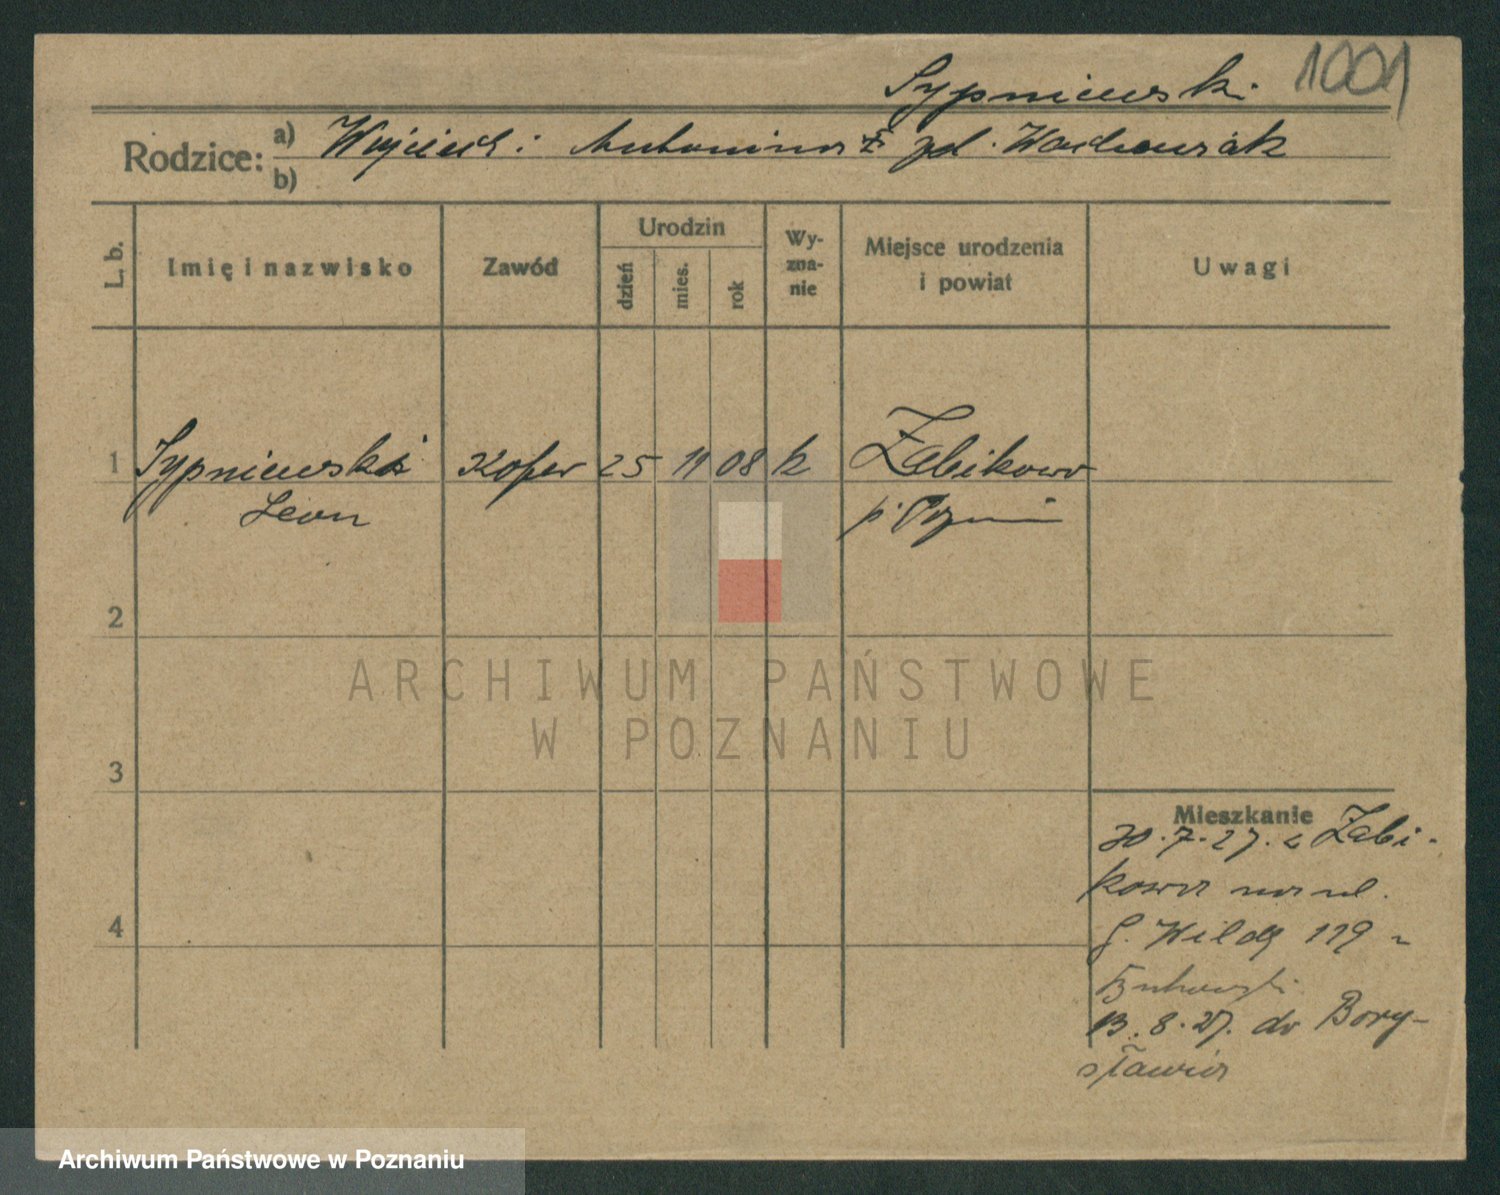 Sypniewski 1001
Rodzice: a) Wojciech i Antonina z
b)
L. b.
Imię i nazwisko
Zawód
Urodzin
dzień
mies.
rok
Wy-
zna-
nie
Miejsce urodzenia
i powiat
Uwagi
1 Sypniewski 25 11 08 k Żabikowo
Leon
2
3
4
Mieszkanie
30.7.27. z Żabi-
kowa na ul.
G. Wilda 119
13.8.27. do Bory-
sławia
ARCHIWUM PAŃSTWOWE
W POZNANIU
Archiwum Państwowe w Poznaniu